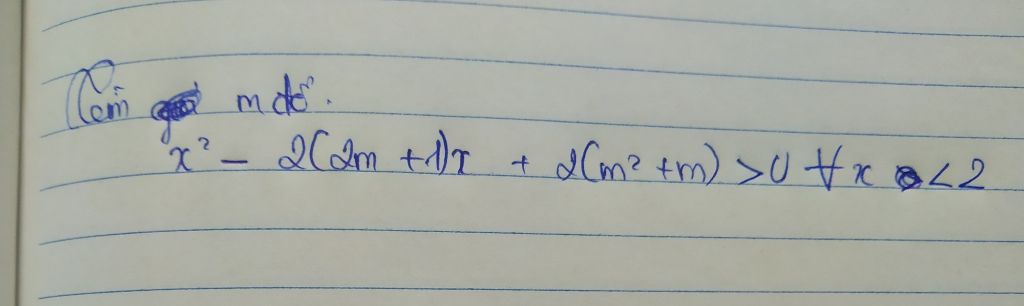 Tìm m để.
x² - 2(2m + 1)x + 2(m² + m) > 0 ∀ x < 2